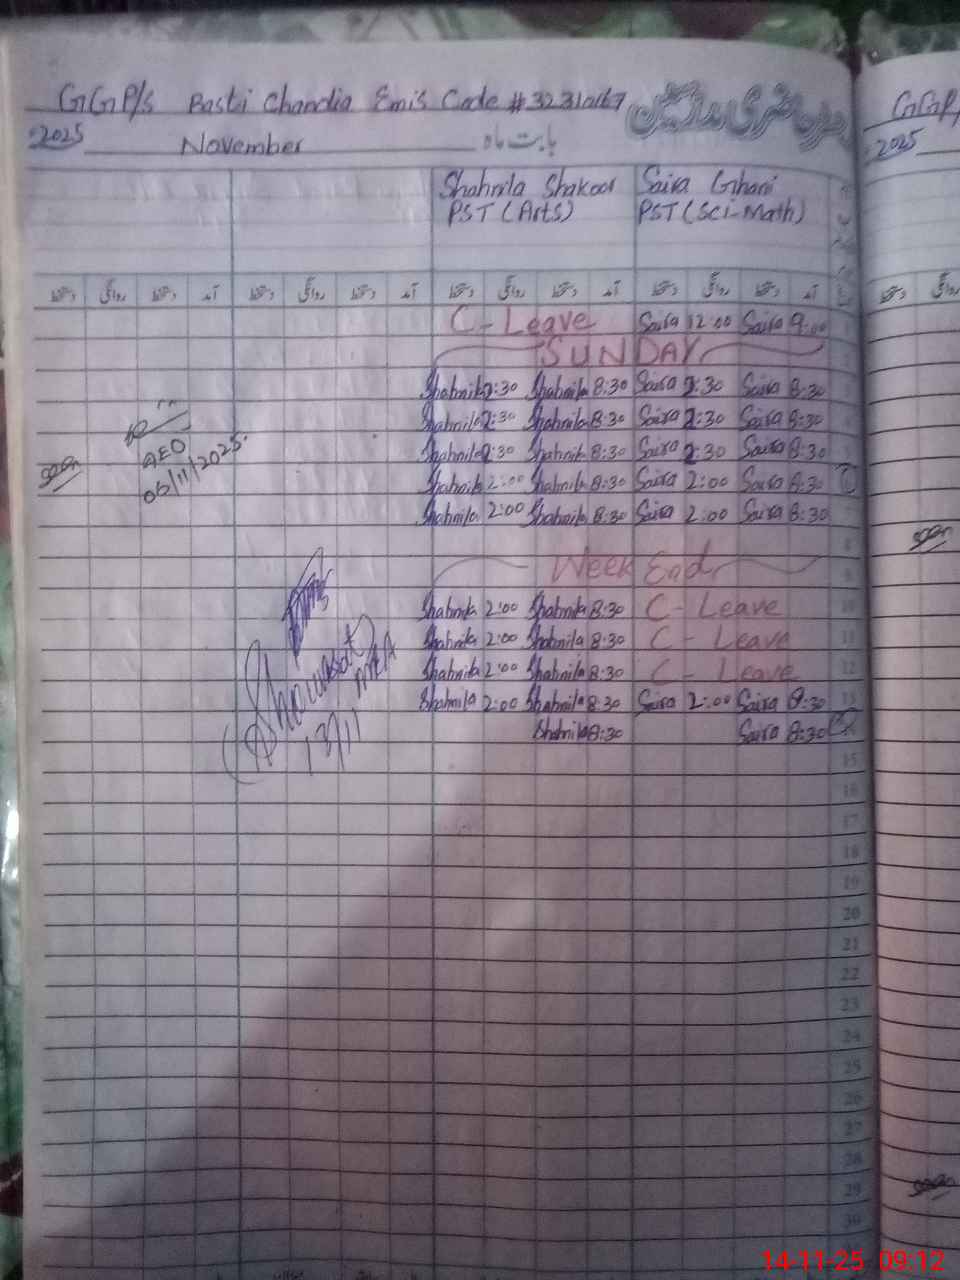 GGP/s Basti Chandia Emis Code # 32310167
2025 November بابت ماہ
Shahnila Shakoor Saira Ghani
PST (Arts) PST (Sci-Math)
دستخط روانگی دستخط آمد دستخط روانگی دستخط آمد دستخط روانگی دستخط آمد دستخط روانگی دستخط آمد
C - Leave Saira 12:00 Saira 9:00
SUNDAY
Shahnila 2:30 Shahnila 8:30 Saira 2:30 Saira 8:30
Shahnila 2:30 Shahnila 8:30 Saira 2:30 Saira 8:30
Shahnila 2:30 Shahnila 8:30 Saira 2:30 Saira 8:30
Shahnila 2:00 Shahnila 8:30 Saira 2:00 Saira 8:30
Shahnila 2:00 Shahnila 8:30 Saira 2:00 Saira 8:30
8
Week End 9
Shahnila 2:00 Shahnila 8:30 C - Leave 10
Shahnila 2:00 Shahnila 8:30 C - Leave 11
Shahnila 2:00 Shahnila 8:30 C - Leave 12
Shahnila 2:00 Shahnila 8:30 Saira 2:00 Saira 8:30 13
Shahnila 8:30 Saira 8:30
15
16
17
18
19
20
21
22
23
24
25
26
27
28
29
30
seen
AEO
06/11/2025
MEA
13/11
GGP/
2025
دستخط روانگی
seen
seen
14-11-25 09:12